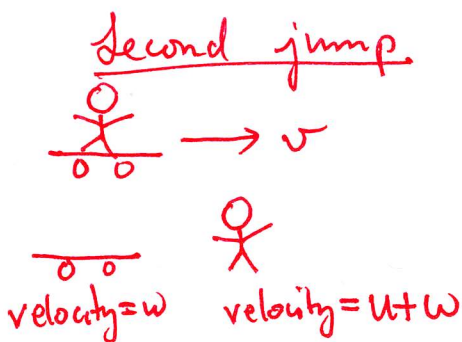 Second jump
v
velocity=w velocity=u+w